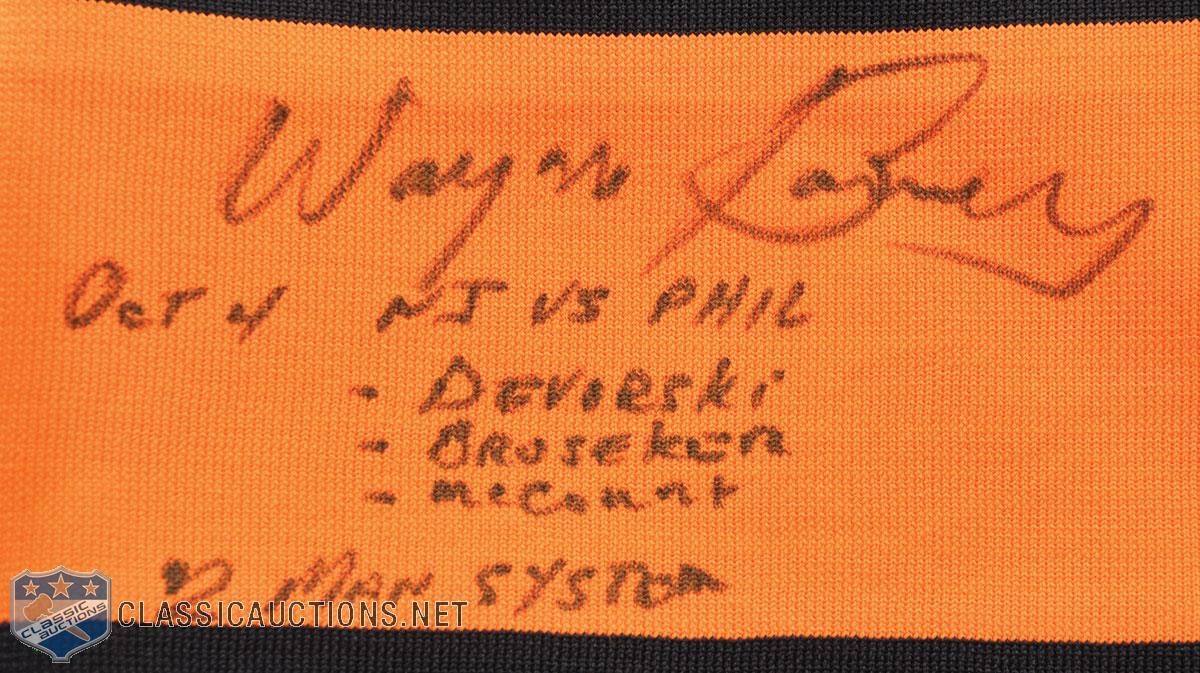 Wayne Bonney
Oct 4 NJ VS PHIL
- DEVORSKi
- BROSEKER
- McCourt
2 MAN SYSTEM
CLASSIC
AUCTIONS
CLASSICAUCTIONS.NET